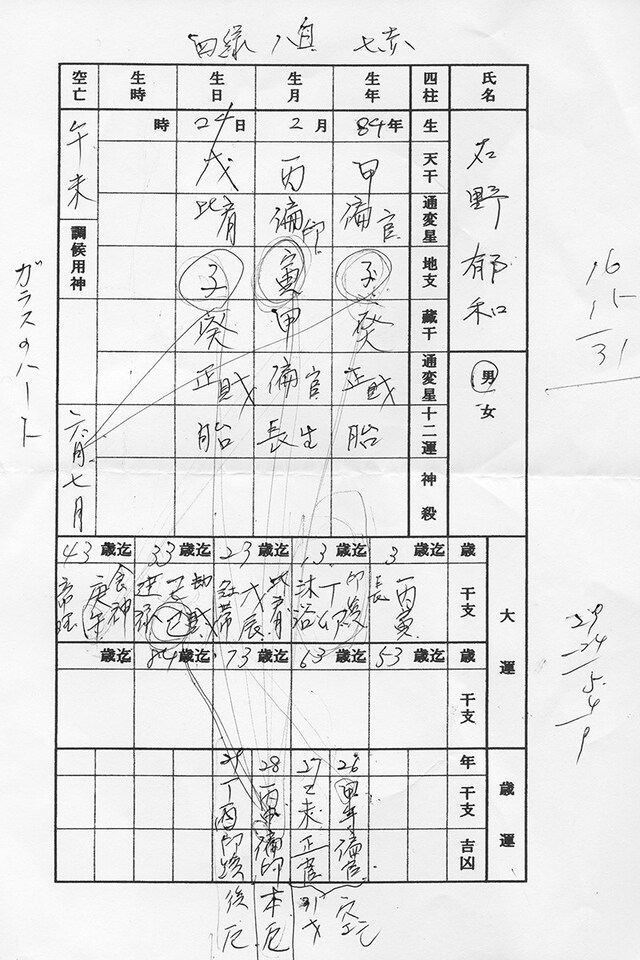 四緑 八白 七赤
氏名 四柱 生年 生月 生日 生時 空亡
石野郁和
生 84年 2月 24日 時
午未
天干 甲 丙 戊
通変星 偏官 偏印 比肩
調候用神
地支 子 寅 子
藏干 癸 甲 癸
通変星 正財 偏官 正財
男 女
十二運 胎 長生 胎
神殺
六月七月
ガラスのハート
16
15
31
大運
歳 3歳迄 13歳迄 23歳迄 33歳迄 43歳迄
干支 丙寅 長 丁卯 印綬 沐浴 戊辰 比肩 冠帯 己巳 劫財 建禄 庚午 食神 帝旺
歳 53歳迄 63歳迄 73歳迄 84歳迄 歳迄
干支
29
24
5
4
9
歳運
年 26 27 28 29
干支 甲午 乙未 丙申 丁酉
吉凶 偏官 正官 偏印 印綬
空亡 本厄 後厄